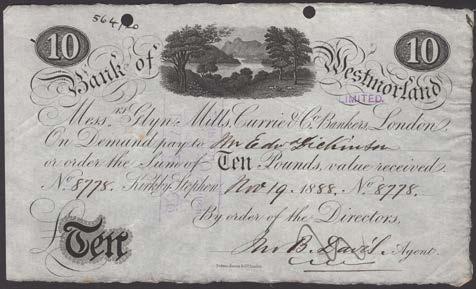 564/20
10 10
Bank of Westmorland
LIMITED.
Mess.rs Glyn Mills, Currie & Co. Bankers, London.
On Demand pay to Mr Edwd Dickinson
or order the Sum of Ten Pounds, value received
No. 8778. Kirkby Stephen Nov 19. 1888. No. 8778.
By order of the Directors,
£Ten Jno B. Davis Agent.